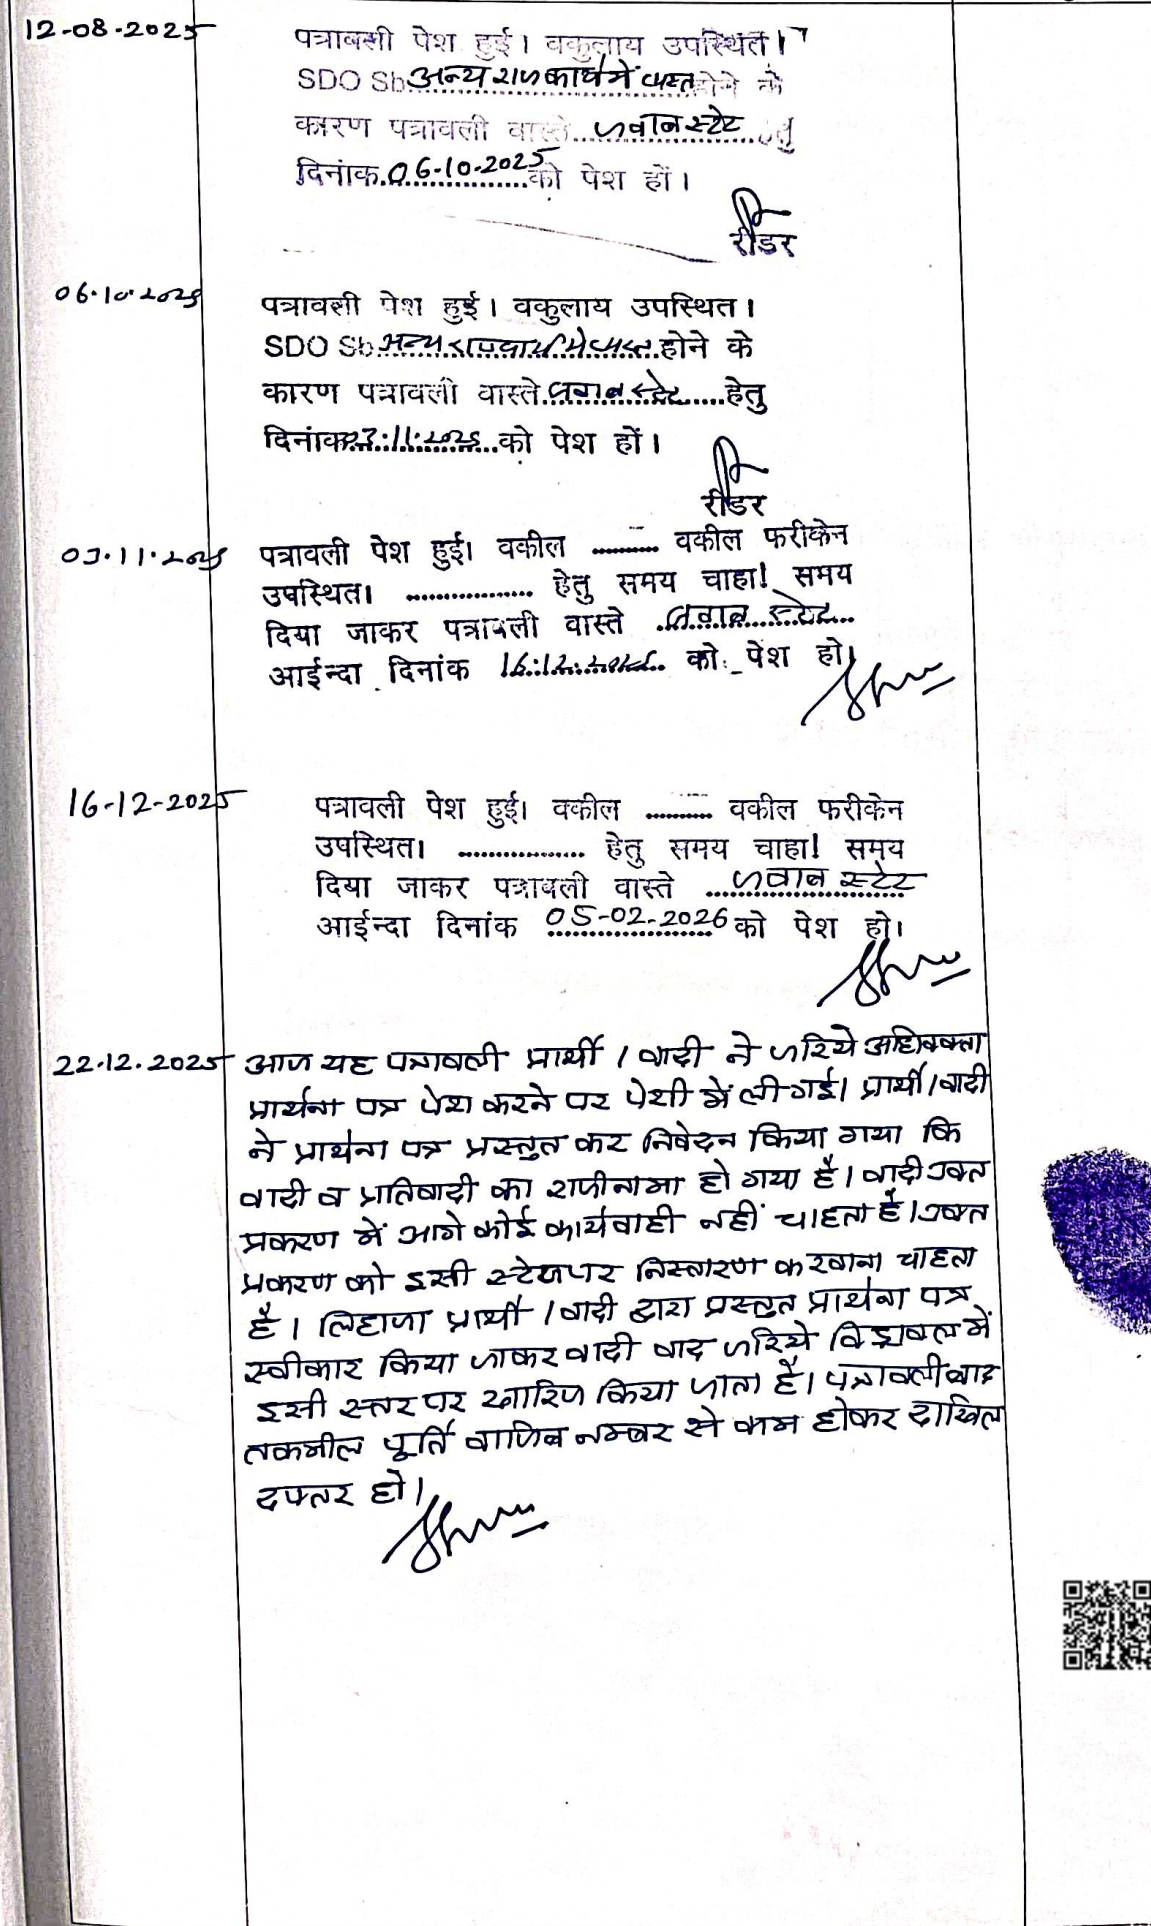 12-08-2025
पत्रावली पेश हुई। वकुलाय उपस्थित।
SDO Sb अन्य राजकार्य में व्यस्त होने के
कारण पत्रावली वास्ते जवाब स्टेट हेतु
दिनांक 06-10-2025 को पेश हों।
रीडर
06.10.2025
पत्रावली पेश हुई। वकुलाय उपस्थित।
SDO Sb अन्य राजकार्य में व्यस्त होने के
कारण पत्रावली वास्ते जवाब स्टेट हेतु
दिनांक 03.11.2025 को पेश हों।
रीडर
03.11.2025
पत्रावली पेश हुई। वकील ......... वकील फरीकेन
उपस्थित। ................. हेतु समय चाहा! समय
दिया जाकर पत्रावली वास्ते जवाब स्टेट
आईन्दा दिनांक 16.12.2025 को पेश हो।
16-12-2025
पत्रावली पेश हुई। वकील ......... वकील फरीकेन
उपस्थित। ................. हेतु समय चाहा! समय
दिया जाकर पत्रावली वास्ते जवाब स्टेट
आईन्दा दिनांक 05-02-2026 को पेश हो।
22.12.2025 आज यह पत्रावली प्रार्थी / वादी ने जरिये अधिवक्ता
प्रार्थना पत्र पेश करने पर पेशी में ली गई। प्रार्थी / वादी
ने प्रार्थना पत्र प्रस्तुत कर निवेदन किया गया कि
वादी व प्रतिवादी का राजीनामा हो गया है। वादी उक्त
प्रकरण में आगे कोई कार्यवाही नहीं चाहता है। उक्त
प्रकरण को इसी स्टेज पर निस्तारण करवाना चाहता
है। लिहाजा प्रार्थी / वादी द्वारा प्रस्तुत प्रार्थना पत्र
स्वीकार किया जाकर वादी वाद जरिये विड्रावल में
इसी स्तर पर खारिज किया जाता है। पत्रावली बाद
तकमील पूर्ति वाजिब नम्बर से कम होकर दाखिल
दफ्तर हो।